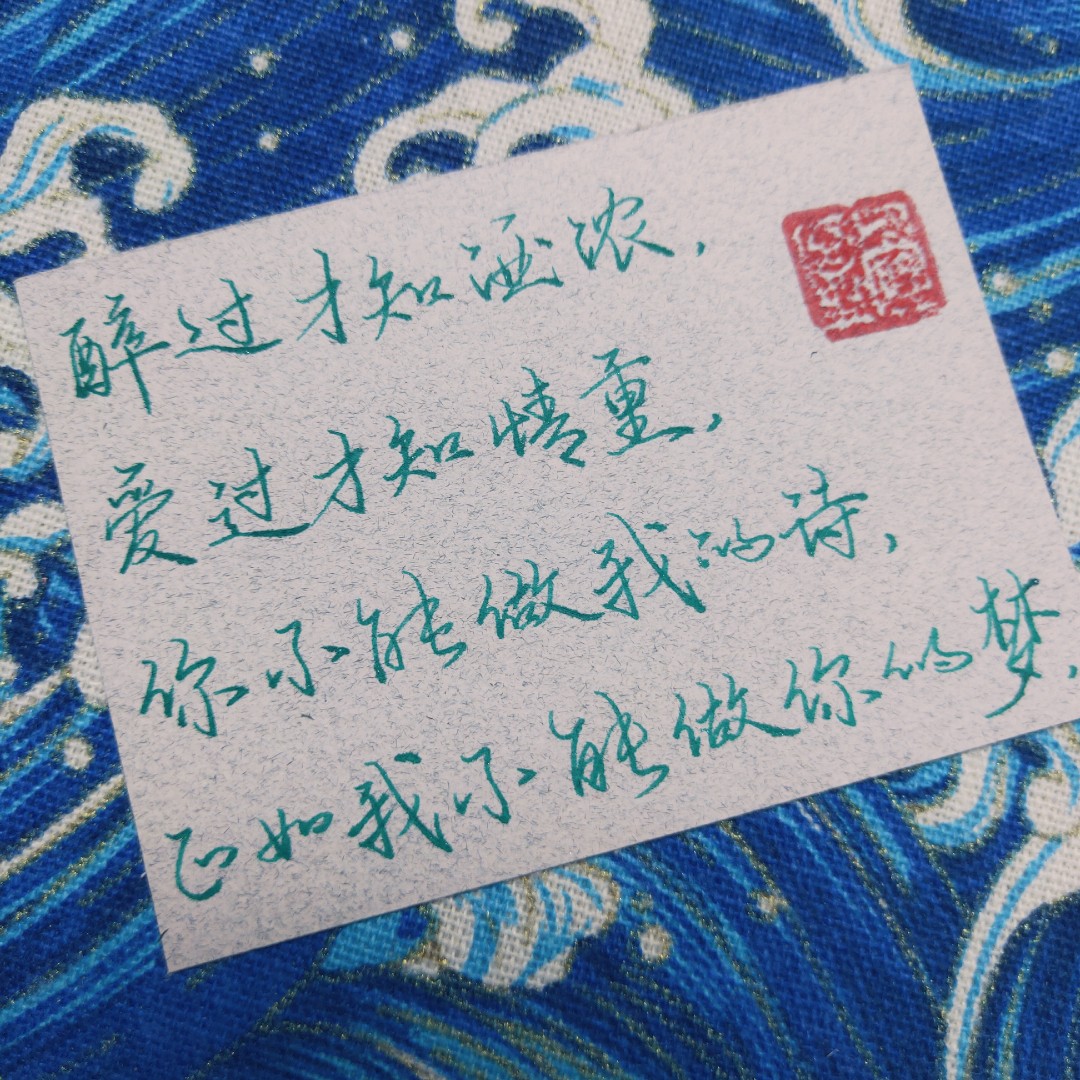 醉过才知酒浓，
爱过才知情重，
你不能做我的诗，
正如我不能做你的梦，